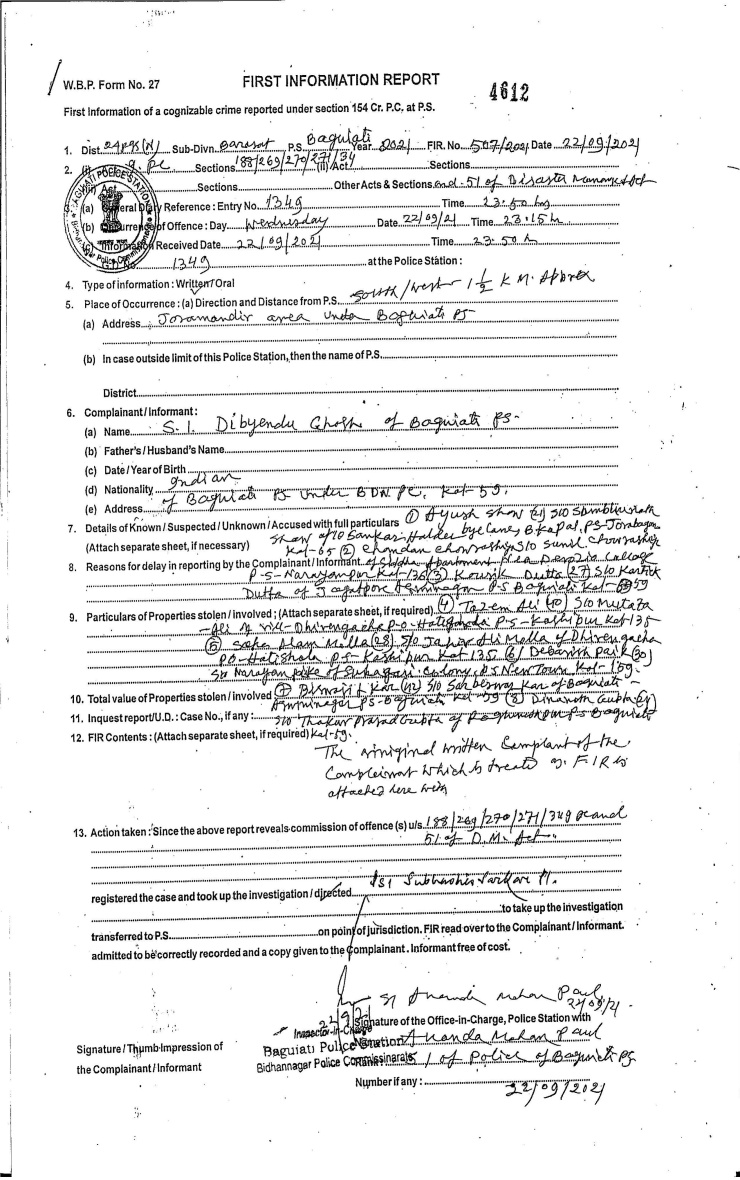 W.B.P. Form No. 27
FIRST INFORMATION REPORT
4612
First Information of a cognizable crime reported under section 154 Cr. P.C. at P.S.
1. Dist. 24 Pgs (N) Sub-Divn. Barasat P.S. Baguiati Year 2021 FIR. No. 507/2021 Date 22/09/2021
2. (i) Sections 188/269/270/271/34 (ii) Act Sections
(iii) Act Sections Other Acts & Sections and 51 of Disaster Management Act
3. (a) General Diary Reference : Entry No. 1349 Time 23:50 hrs
(b) Occurrence of Offence : Day Wednesday Date 22/09/21 Time 23:15 h
(c) Information Received Date 22/09/2021 Time 23:50 h
1349 at the Police Station :
4. Type of information : Written / Oral
5. Place of Occurrence : (a) Direction and Distance from P.S. South/West 1 1/2 K M. Approx
(a) Address Joramandir area under Baguiati PS
(b) In case outside limit of this Police Station, then the name of P.S.
District
6. Complainant / Informant :
(a) Name S. I. Dibyendu Ghosh of Baguiati PS
(b) Father's / Husband's Name
(c) Date / Year of Birth
(d) Nationality Indian
(e) Address of Baguiati PS under BDN PC, Kol-59.
7. Details of Known / Suspected / Unknown / Accused with full particulars (1) Ayush Shaw (21) S/O Sambhunath
(Attach separate sheet, if necessary) Shaw of 10 Sankar Halder bye lane, B K Pal, PS-Jorabagan
Kol-65 (2) Chandan Chowrashia S/O Sunil Chowrashia
8. Reasons for delay in reporting by the Complainant / Informant. of Siddha Apartment
P.S-Narayanpur Kol-136 (3) Kousik Dutta (27) S/O Kartick
Dutta of Jagatpore PS Baguiati Kol-59
9. Particulars of Properties stolen / involved ; (Attach separate sheet, if required) (4) Ali (40) S/O
Ali of vill-Dhirengacha P.O-Hatishala P.S-Kashipur Kol-135
(5) Saha Alam Molla (28) S/O Ali Molla of Dhirengacha
P.O-Hatishala P.S-Kashipur Kol-135 (6) Debasish Paik (30)
S/o Narayan of Colony PS New Town Kol-159.
10. Total value of Properties stolen / involved (7) Biswajit Kar (42) S/O Kar of Baguiati
PS-Baguiati Kol-59 (8) Dinanath Gupta
11. Inquest report / U.D. : Case No., if any : S/o Thakur Prasad Gupta of PS Baguiati
12. FIR Contents : (Attach separate sheet, if required) Kol-59.
The original written Complaint of the
Complainant which is treated as FIR is
attached here with
13. Action taken : Since the above report reveals commission of offence (s) u/s. 188/269/270/271/34 and
51 of D.M. Act.
registered the case and took up the investigation / directed
to take up the investigation
transferred to P.S. on point of jurisdiction. FIR read over to the Complainant / Informant.
admitted to be correctly recorded and a copy given to the Complainant. Informant free of cost.
Mohan Paul
22/09/21
Signature of the Office-in-Charge, Police Station with
Inspector-in-Charge
Baguiati Police Station
Bidhannagar Police Commissionarate
Ananda Mohan Paul
of Police of Baguiati PS
Signature / Thumb Impression of
the Complainant / Informant
Number if any :
22/09/2021